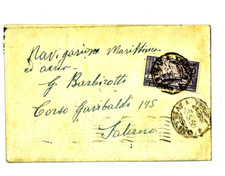 Navigazione Marittima
ed aerea
G Barbirotti
Corso Garibaldi 195
Salerno